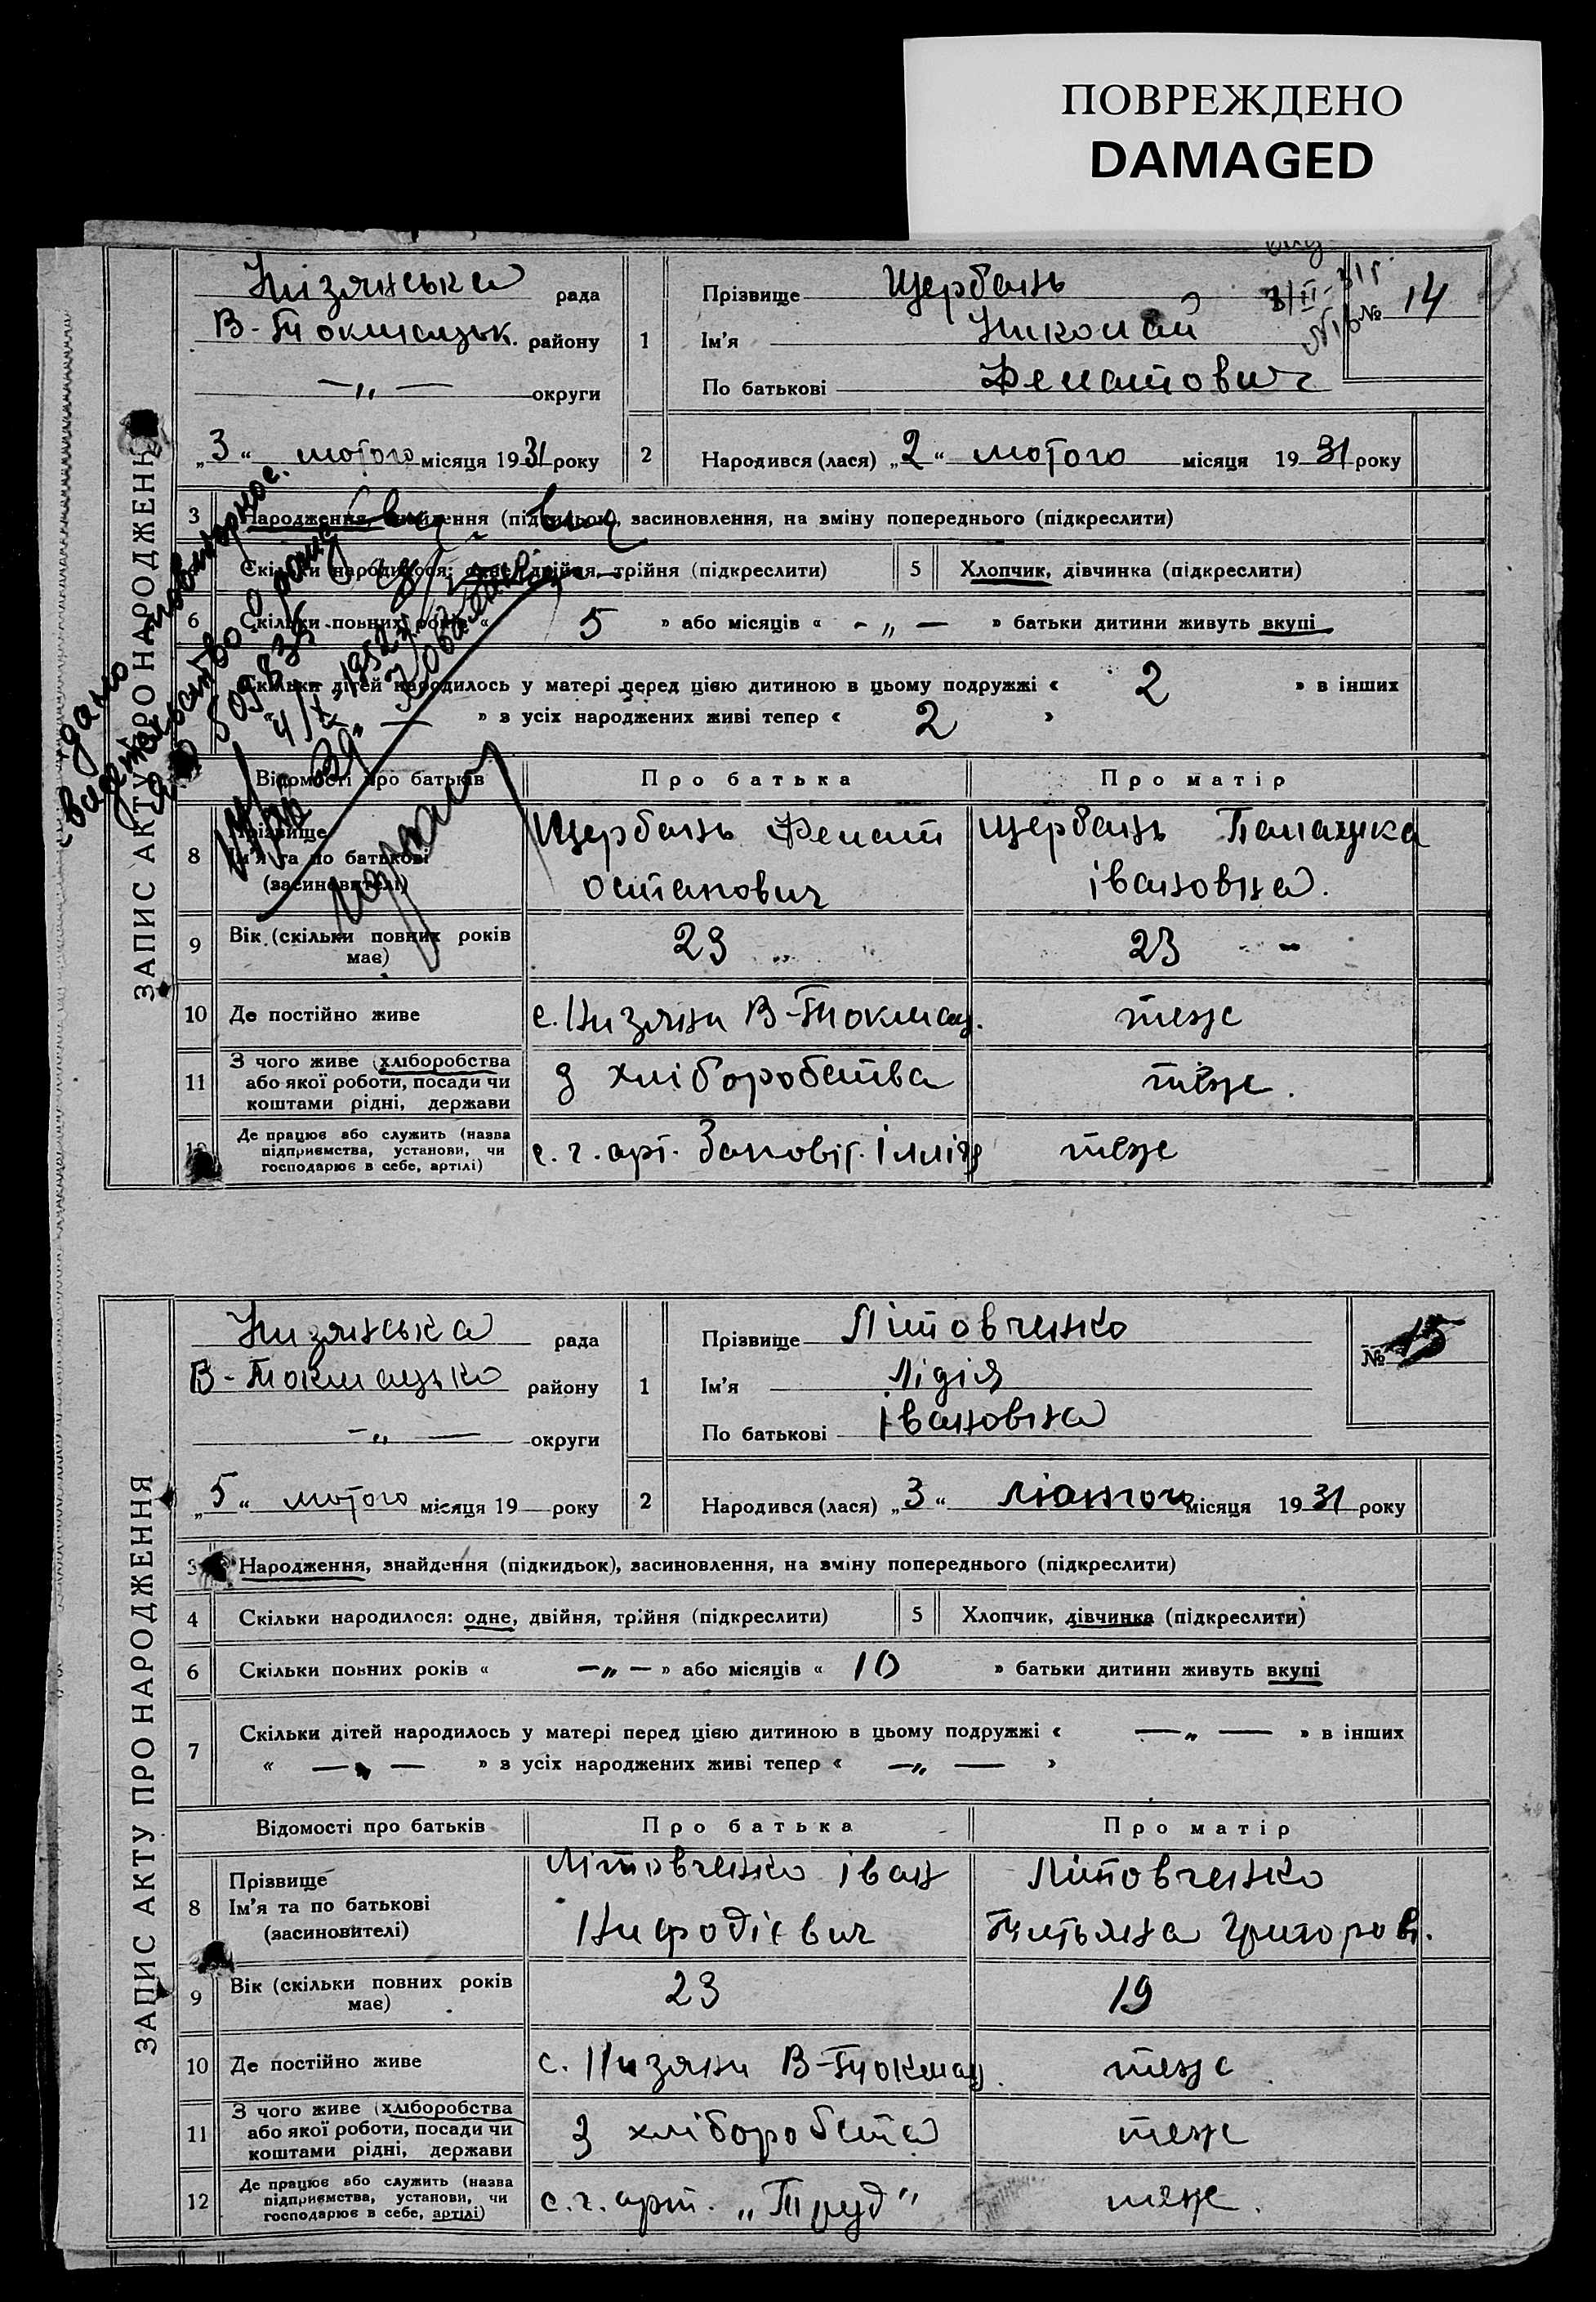 ПОВРЕЖДЕНО
DAMAGED
ЗАПИС АКТУ ПРО НАРОДЖЕННЯ
Низянська рада
В-Токмацьк. району
— „ — округи
„3“ лютого місяця 1931 року
1
Прізвище Щербань
Ім'я Николай
По батькові Филатович
№ 14
2
Народився (лася) „2“ лютого місяця 1931 року
3
Народження, знайдення (підкидьок), засиновлення, на зміну попереднього (підкреслити)
Скільки народилося: одне, двійня, трійня (підкреслити)
5
Хлопчик, дівчинка (підкреслити)
6
Скільки повних років « 5 » або місяців « — „ — » батьки дитини живуть вкупі
Скільки дітей народилось у матері перед цією дитиною в цьому подружжі « 2 » в інших
» з усіх народжених живі тепер « 2 »
дано повторное
свидетельство о рожд.
Відомості про батьків
Про батька
Про матір
8
Прізвище
Ім'я та по батькові
(засиновителі)
Щербань Филат
Остапович
Щербань Палашка
Івановна.
9
Вік (скільки повних років має)
23
10
Де постійно живе
с. Низяни В-Токмац.
теж
11
З чого живе (хліборобства
або якої роботи, посади чи
коштами рідні, держави
З хліборобства
теж.
Де працює або служить (назва
підприємства, установи, чи
господарює в себе, артілі)
с. г. арт. Заповіт. Ілліча
теж
ЗАПИС АКТУ ПРО НАРОДЖЕННЯ
Низянська рада
В-Токмацько району
— „ — округи
„5“ лютого місяця 19— року
1
Прізвище Літовченко
Ім'я Лідія
По батькові Івановна
№ 15
2
Народився (лася) „3“ лютого місяця 1931 року
3
Народження, знайдення (підкидьок), засиновлення, на зміну попереднього (підкреслити)
4
Скільки народилося: одне, двійня, трійня (підкреслити)
5
Хлопчик, дівчинка (підкреслити)
6
Скільки повних років « — „ — » або місяців « 10 » батьки дитини живуть вкупі
7
Скільки дітей народилось у матері перед цією дитиною в цьому подружжі « — „ — » в інших
« — „ — » з усіх народжених живі тепер « — „ — »
Відомості про батьків
Про батька
Про матір
8
Прізвище
Ім'я та по батькові
(засиновителі)
Літовченко Іван
Нифодієвич
Літовченко
Титьяна Григоров.
9
Вік (скільки повних років має)
23
19
10
Де постійно живе
с. Низяни В-Токмац.
теж
11
З чого живе (хліборобства
або якої роботи, посади чи
коштами рідні, держави
З хліборобста
теж
12
Де працює або служить (назва
підприємства, установи, чи
господарює в себе, артілі)
с. г. арт. „Труд“
теж.